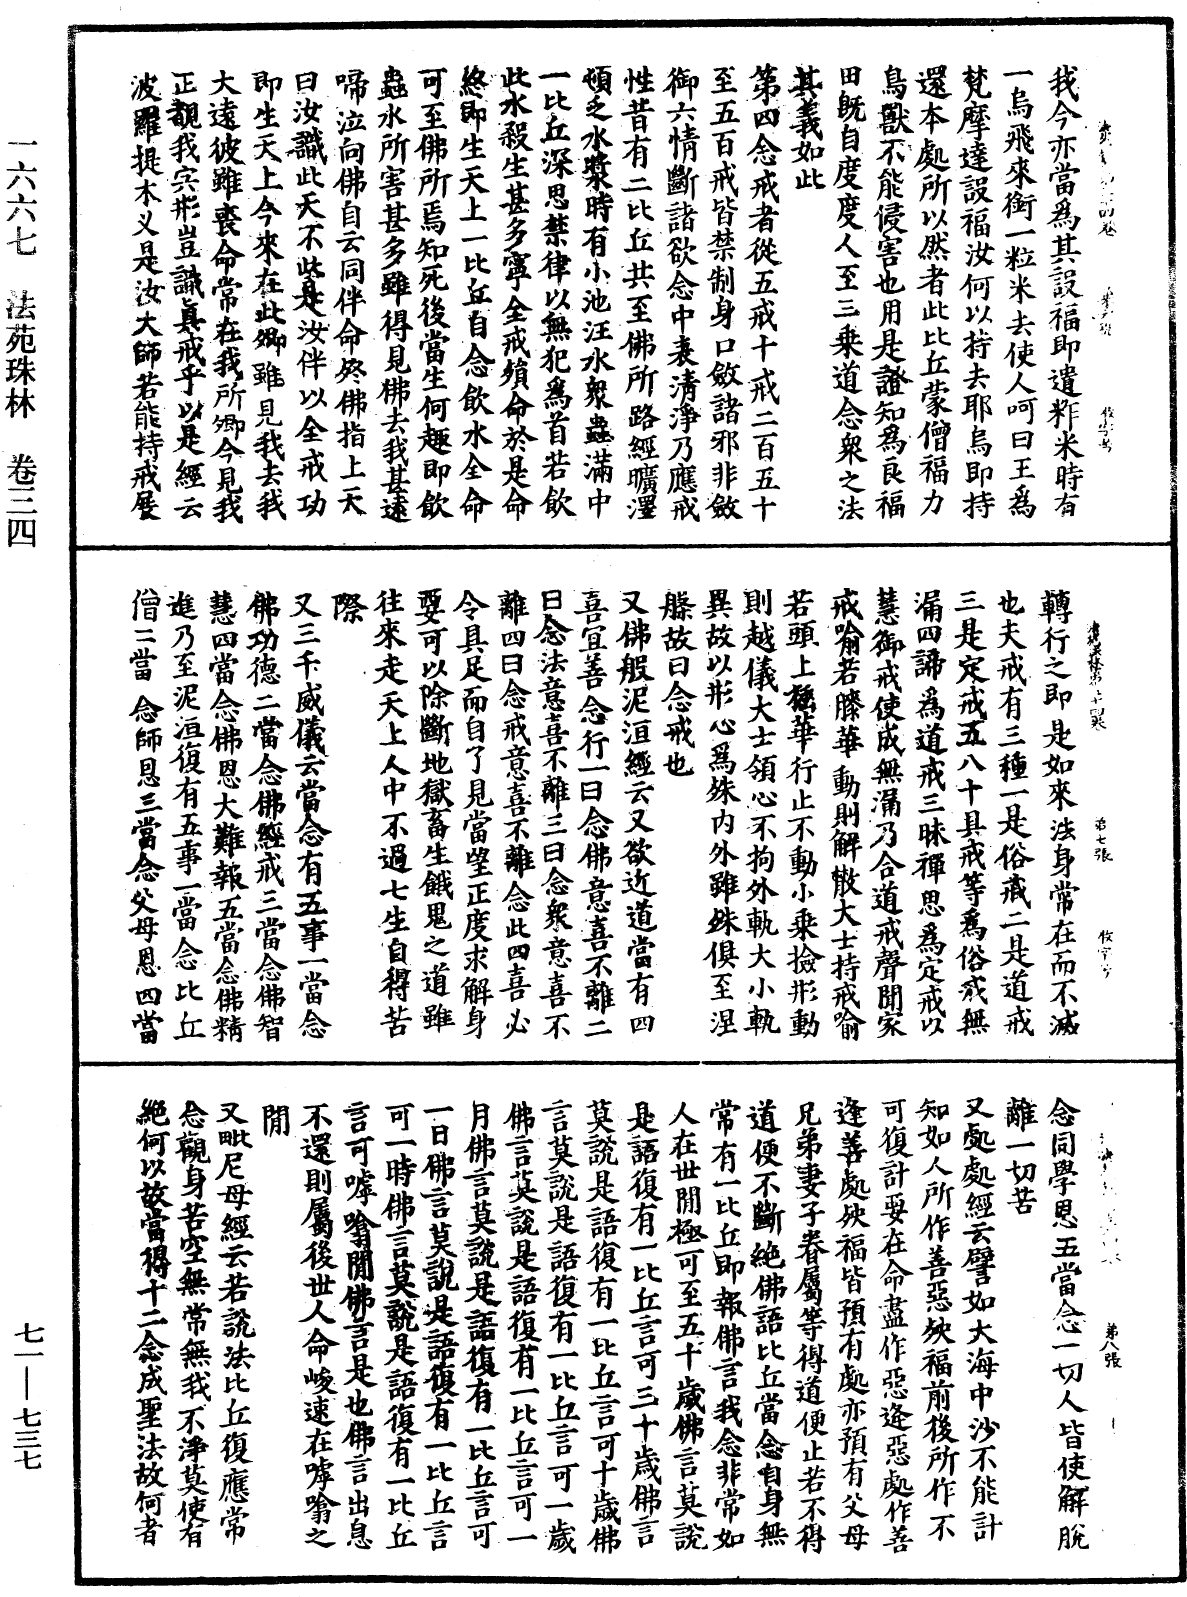 一六六七　法苑珠林　卷三四
七一—七三七
我今亦當爲其設福即遣粖米時有
一烏飛來銜一粒米去使人呵曰王爲
梵摩達設福汝何以持去耶烏即持
還本處所以然者此比丘蒙僧福力
鳥獸不能侵害也用是證知爲良福
田旣自度度人至三乗道念衆之法
其義如此
第四念戒者從五戒十戒二百五十
至五百戒皆禁制身口斂諸邪非斂
御六情斷諸欲念中表清淨乃應戒
性昔有二比丘共至佛所路經曠澤
頓乏水漿時有小池汪水衆蟲滿中
一比丘深思禁律以無犯爲首若飲
此水殺生甚多寧全戒殞命於是命
終即生天上一比丘自念飲水全命
可至佛所焉知死後當生何趣即飲
蟲水所害甚多雖得見佛去我甚遠
啼泣向佛自云同伴命終佛指上天
曰汝識此天不此是汝伴以全戒功
即生天上今來在此卿雖見我去我
大遠彼雖喪命常在我所卿今見我
正覩我宍形豈識真戒乎以是經云
波羅提木义是汝大師若能持戒展
轉行之即是如來法身常在而不滅
也夫戒有三種一是俗戒二是道戒
三是定戒五八十具戒等爲俗戒無
漏四諦爲道戒三昧禪思爲定戒以
慧御戒使成無漏乃合道戒聲聞家
戒喻若膝華動則解散大士持戒喻
若頭上插華行止不動小乗撿形動
則越儀大士領心不拘外軌大小軌
異故以形心爲殊内外雖殊俱至涅
槃故曰念戒也
又佛般泥洹經云又欲近道當有四
喜宜善念行一曰念佛意喜不離二
曰念法意喜不離三曰念衆意喜不
離四曰念戒意喜不離念此四喜必
令具足而自了見當望正度求解身
要可以除斷地獄畜生餓鬼之道雖
往來走天上人中不過七生自得苦
際
又三千威儀云當念有五事一當念
佛功德二當念佛經戒三當念佛智
慧四當念佛恩大難報五當念佛精
進乃至泥洹復有五事一當念比丘
僧二當念師恩三當念父母恩四當
念同學恩五當念一切人皆使解脫
離一切苦
又處處經云譬如大海中沙不能計
知如人所作善惡殃福前後所作不
可復計要在命盡作惡逢惡處作善
逢善處殃福皆預有處亦預有父母
兄弟妻子眷屬等得道便止若不得
道便不斷絶佛語比丘當念自身無
常有一比丘即報佛言我念非常如
人在世間極可至五十歲佛言莫說
是語復有一比丘言可三十歲佛言
莫說是語復有一比丘言可十歲佛
言莫說是語復有一比丘言可一歲
佛言莫說是語復有一比丘言可一
月佛言莫說是語復有一比丘言可
一日佛言莫說是語復有一比丘言
可一時佛言莫說是語復有一比丘
言可呼噏間佛言是也佛言出息
不還則屬後世人命峻速在呼噏之
間
又毗尼母經云若說法比丘復應常
念觀身苦空無常無我不淨莫使有
絶何以故當得十二念成聖法故何者
第七張
第八張